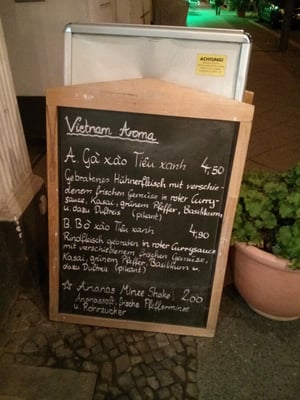 ACHTUNG!
Vietnam Aroma
A. Gà xào Tiêu xanh 4,50
Gebratenes Hühnerfleisch mit verschie-
denem frischen Gemüse in roter Curry-
sauce, Kasai, grünem Pfeffer, Basilikum
u. dazu Duftreis (pikant)
B. Bò xào Tiêu xanh 4,90
Rindfleisch gebraten in roter Currysauce
mit verschiedenem frischen Gemüse,
Kasai, grünem Pfeffer, Basilikum u.
dazu Duftreis (pikant)
☆ Ananas Minze Shake 2,00
Ananassaft, frische Pfefferminze
u. Rohrzucker